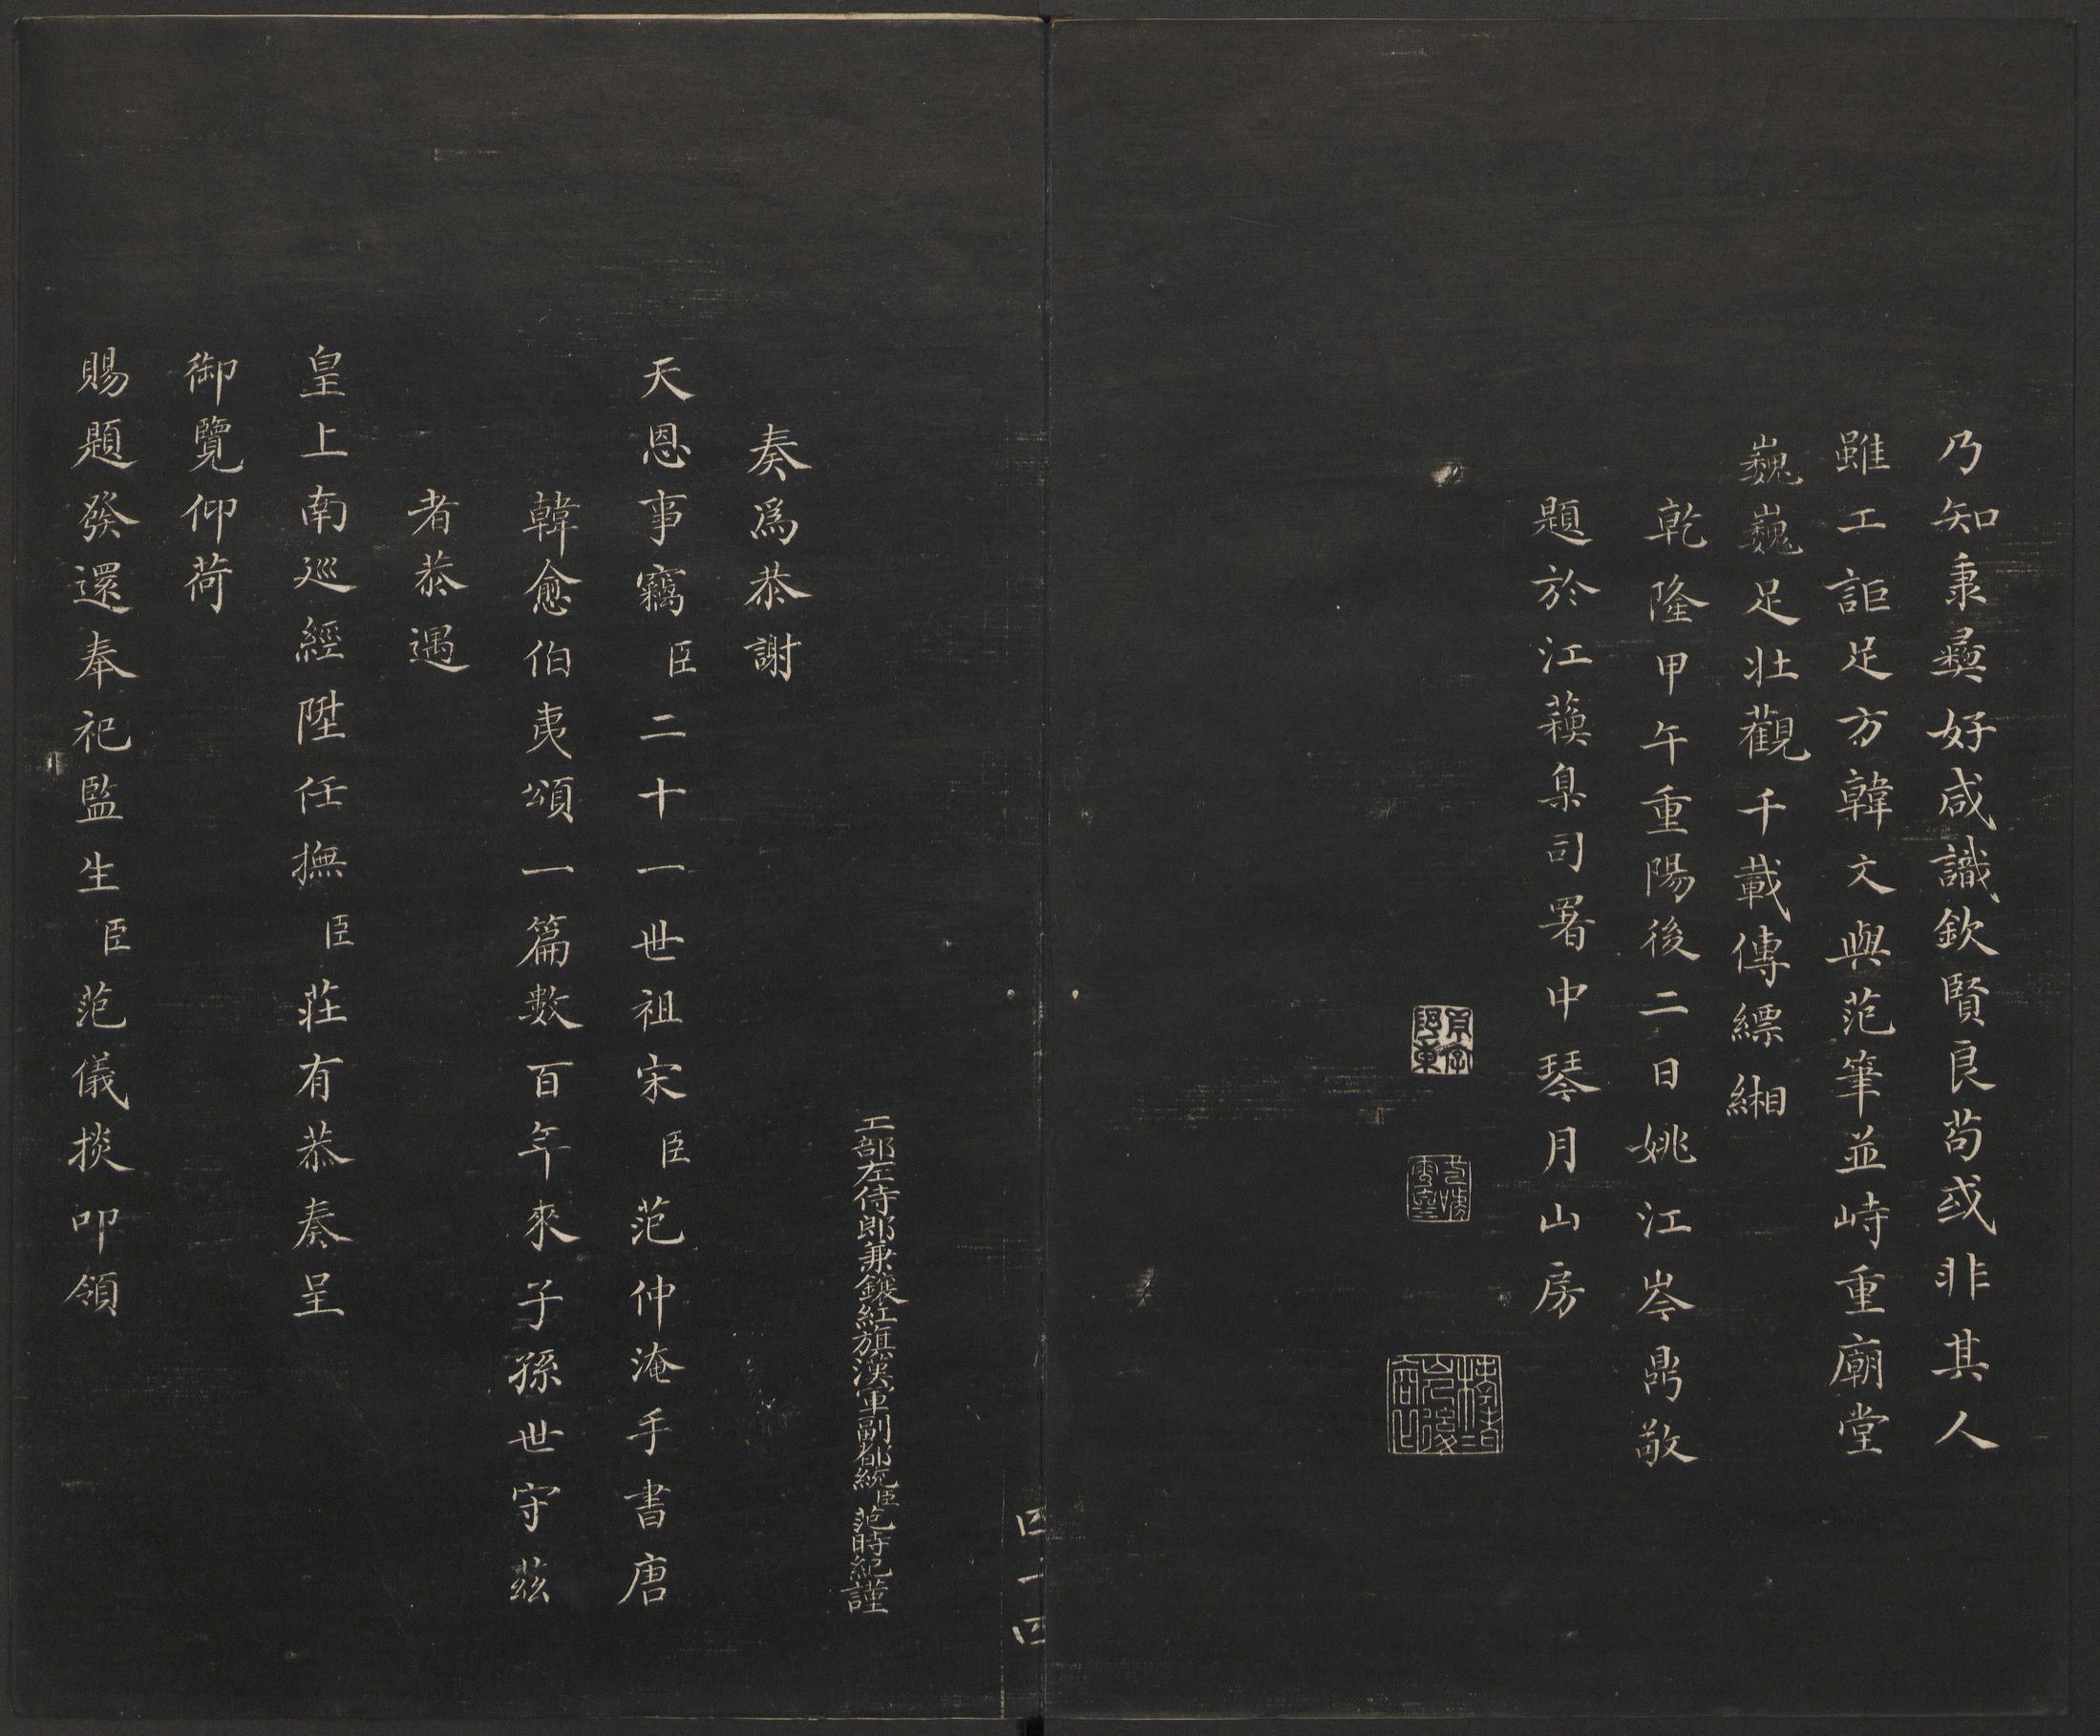 乃知秉彝好咸識欽賢良苟或非其人
雖工詎足方韓文與范筆並峙重廟堂
巍巍足壯觀千載傳縹緗
乾隆甲午重陽後二日姚江岑鼎敬
題於江蘓臬司署中琴月山房
四十四
工部左侍郎兼鑲紅旗漢軍副都統臣范時紀謹
奏爲恭謝
天恩事竊臣二十一世祖宋臣范仲淹手書唐
韓愈伯夷頌一篇數百年來子孫世守茲
者恭遇
皇上南廵經陞任撫臣莊有恭奏呈
御覽仰荷
賜題發還奉祀監生臣范儀掞叩領